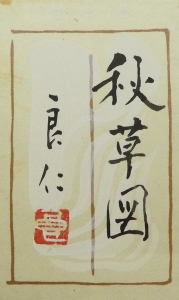 秋草図
良仁